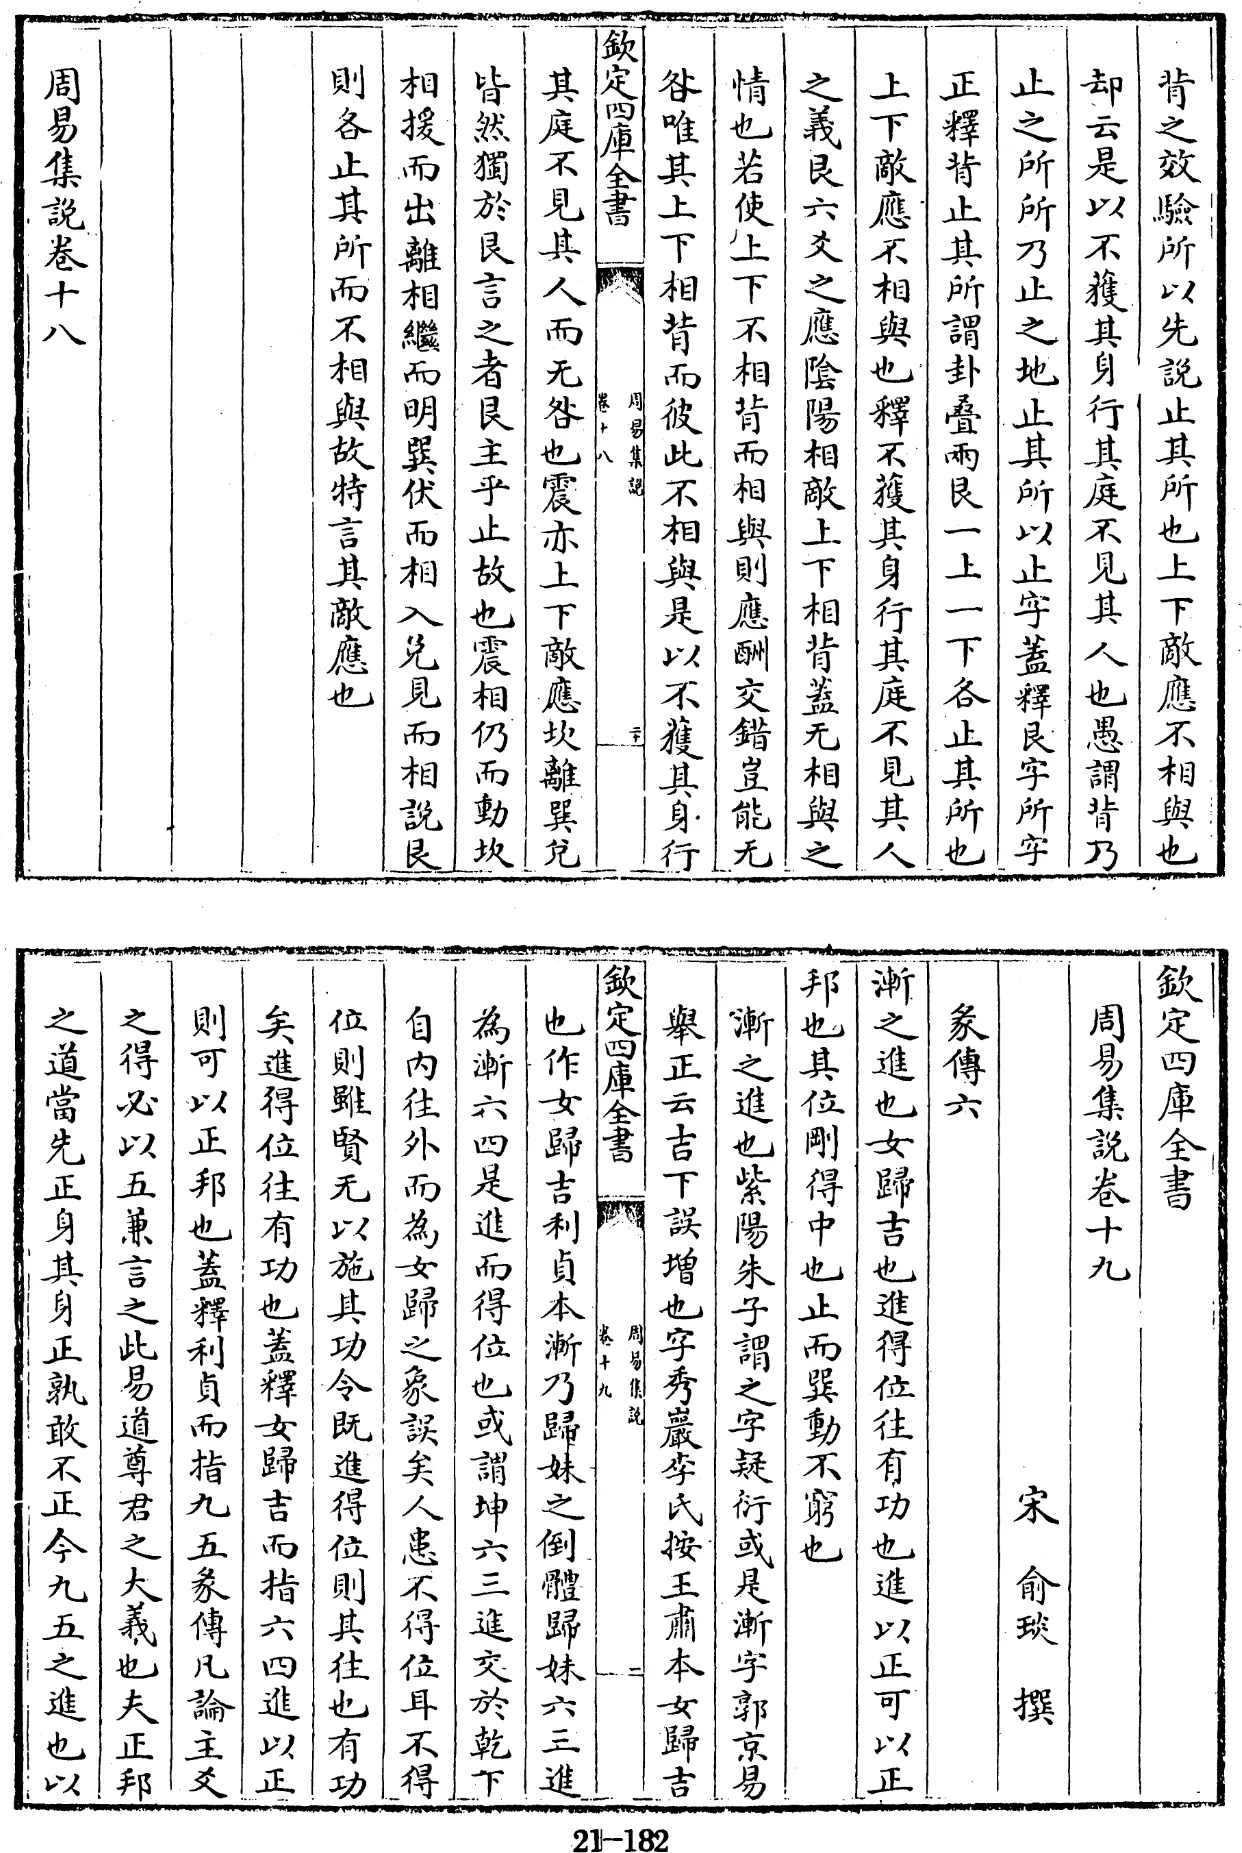 背之效驗所以先説止其所也上下敵應不相與也
却云是以不獲其身行其庭不見其人也愚謂背乃
止之所所乃止之地止其所以止字蓋釋艮字所字
正釋背止其所謂卦疊兩艮一上一下各止其所也
上下敵應不相與也釋不獲其身行其庭不見其人
之義艮六爻之應陰陽相敵上下相背蓋无相與之
情也若使上下不相背而相與則應酬交錯豈能无
咎唯其上下相背而彼此不相與是以不獲其身行
欽定四庫全書
周易集說
卷十八
二十
其庭不見其人而无咎也震亦上下敵應坎離巽兌
皆然獨於艮言之者艮主乎止故也震相仍而動坎
相援而出離相繼而明巽伏而相入兌見而相說艮
則各止其所而不相與故特言其敵應也
周易集説卷十八
欽定四庫全書
周易集説卷十九
宋 俞琰 撰
彖傳六
漸之進也女歸吉也進得位往有功也進以正可以正
邦也其位剛得中也止而巽動不窮也
漸之進也紫陽朱子謂之字疑衍或是漸字郭京易
舉正云吉下誤增也字秀巖李氏按王肅本女歸吉
欽定四庫全書
周易集說
卷十九
二
也作女歸吉利貞本漸乃歸妹之倒體歸妹六三進
為漸六四是進而得位也或謂坤六三進交於乾下
自内往外而為女歸之象誤矣人患不得位耳不得
位則雖賢无以施其功令既進得位則其往也有功
矣進得位往有功也蓋釋女歸吉而指六四進以正
則可以正邦也蓋釋利貞而指九五彖傳凡論主爻
之得必以五兼言之此易道尊君之大義也夫正邦
之道當先正身其身正孰敢不正今九五之進也以
21-182